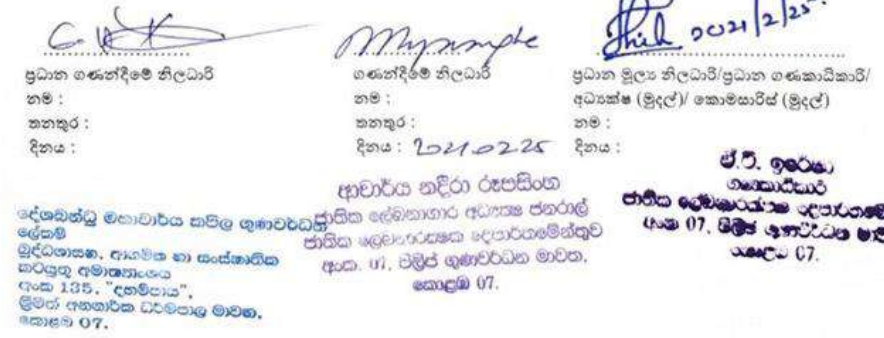 2021/2/25.
ප්‍රධාන ගණන්දීමේ නිලධාරි
නම :
තනතුර :
දිනය :
දේශබන්ධු මහාචාර්ය කපිල ගුණවර්ධන
ලේකම්
බුද්ධශාසන, ආගමික හා සංස්කෘතික
කටයුතු අමාත්‍යාංශය
අංක 135, "දහම්පාය",
ශ්‍රීමත් අනගාරික ධර්මපාල මාවත,
කොළඹ 07.
ගණන්දීමේ නිලධාරි
නම :
තනතුර :
දිනය : 20210225
ආචාර්ය නදීරා රූපසිංහ
ජාතික ලේඛනාගාර අධ්‍යක්ෂ ජනරාල්
ජාතික ලේඛනාරක්ෂක දෙපාර්තමේන්තුව
අංක. 07, ෆිලිප් ගුණවර්ධන මාවත,
කොළඹ 07.
ප්‍රධාන මූල්‍ය නිලධාරි/ප්‍රධාන ගණකාධිකාරි/
අධ්‍යක්ෂ (මුදල්)/ කොමසාරිස් (මුදල්)
නම :
දිනය :
ගණකාධිකාරි
ජාතික ලේඛනාරක්ෂක
අංක 07, ෆිලිප් ගුණවර්ධන
කොළඹ 07.